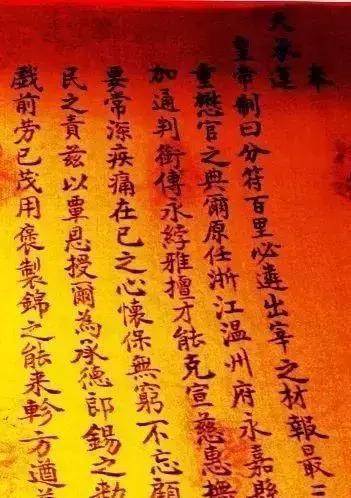 奉
天承運
皇帝制曰分符百里必遴出宰之材報最三
重懋官之典爾原任浙江温州府永嘉縣
加通判銜傅永綍雅擅才能克宣慈惠撫
要常深疾痛在已之心懷保無窮不忘顧
民之責兹以覃恩授爾為承德郎錫之勅
戲前芳已茂用褒製錦之能来軫方遒